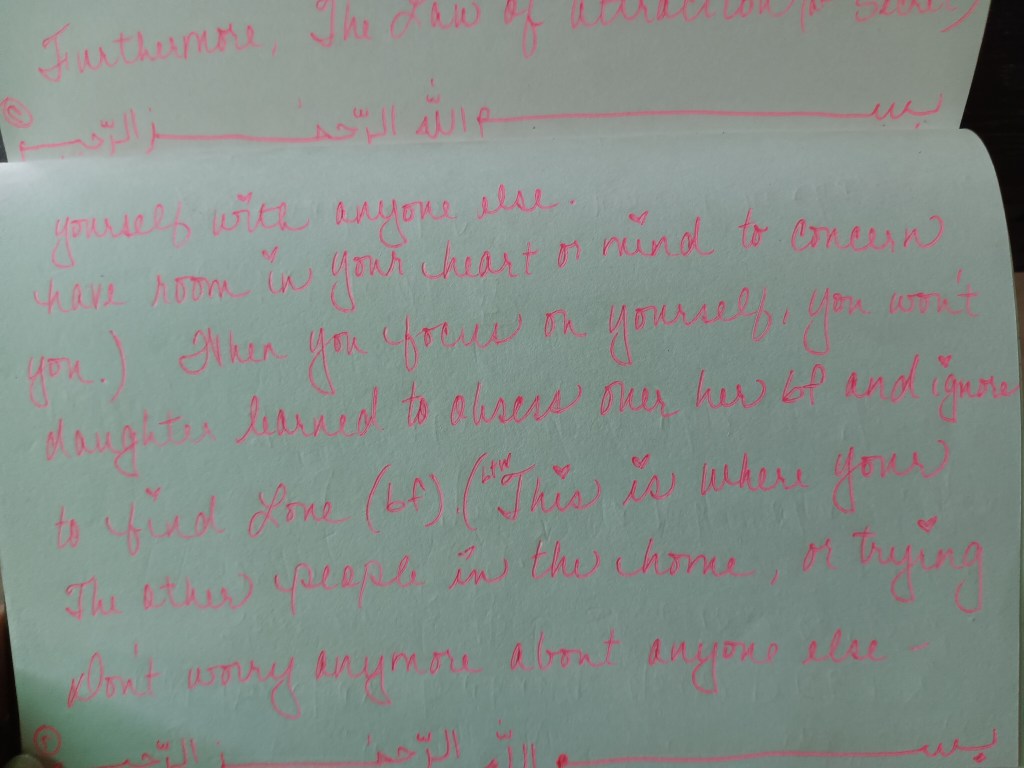 Furthermore, The Law of attraction (or Secret)
② بســـم اللّه الرّحمن الرّحيم
yourself with anyone else.
have room in your heart or mind to concern
you.) When you focus on yourself, you won't
daughter learned to obsess over her bf and ignore
to find Love (bf). (btw This is where your
The other people in the home, or trying
Don't worry anymore about anyone else -
بســـم اللّه الرّحمن الرّحيم